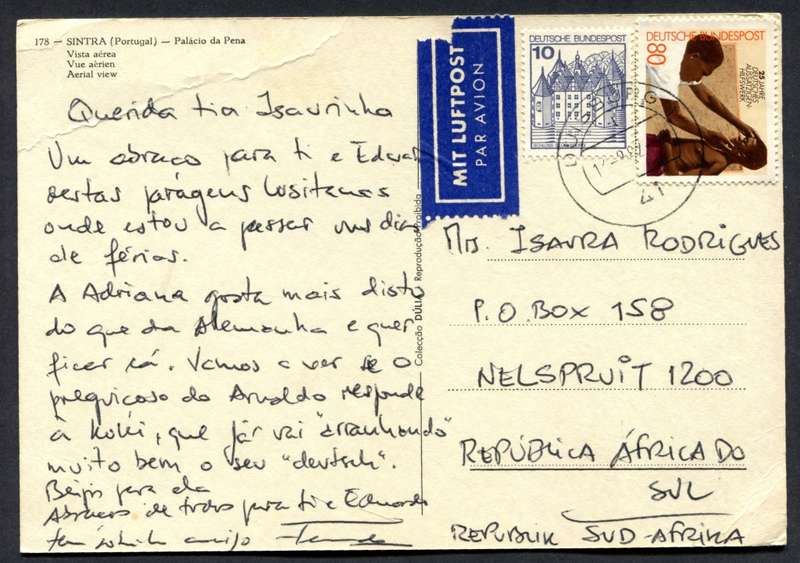 178 — SINTRA (Portugal) — Palácio da Pena
Vista aérea
Vue aérien
Aerial view
Querida tia Isaurinha
Um abraço para ti e Eduar
destas paragens lusitanas
onde estou a passar uns dias
de férias.
A Adriana gosta mais disto
do que da Alemanha e quer
ficar cá. Vamos a ver se o
preguiçoso do Arnaldo responde
à Koki, que já vai "arranhando"
muito bem o seu "deutsch".
Beijos para ela
Abraços de todos para ti e Eduardo
Colecção DÚLIA Reprodução Proibida
MIT LUFTPOST
PAR AVION
DEUTSCHE BUNDESPOST
10
DEUTSCHE BUNDESPOST
80
25 JAHRE
DEUTSCHES
AUSSÄTZIGEN-
HILFSWERK
41
Mrs. ISAURA RODRIGUES
P.O. BOX 158
NELSPRUIT 1200
REPÚBLICA ÁFRICA DO
SUL
REPUBLIK SUD-AFRIKA